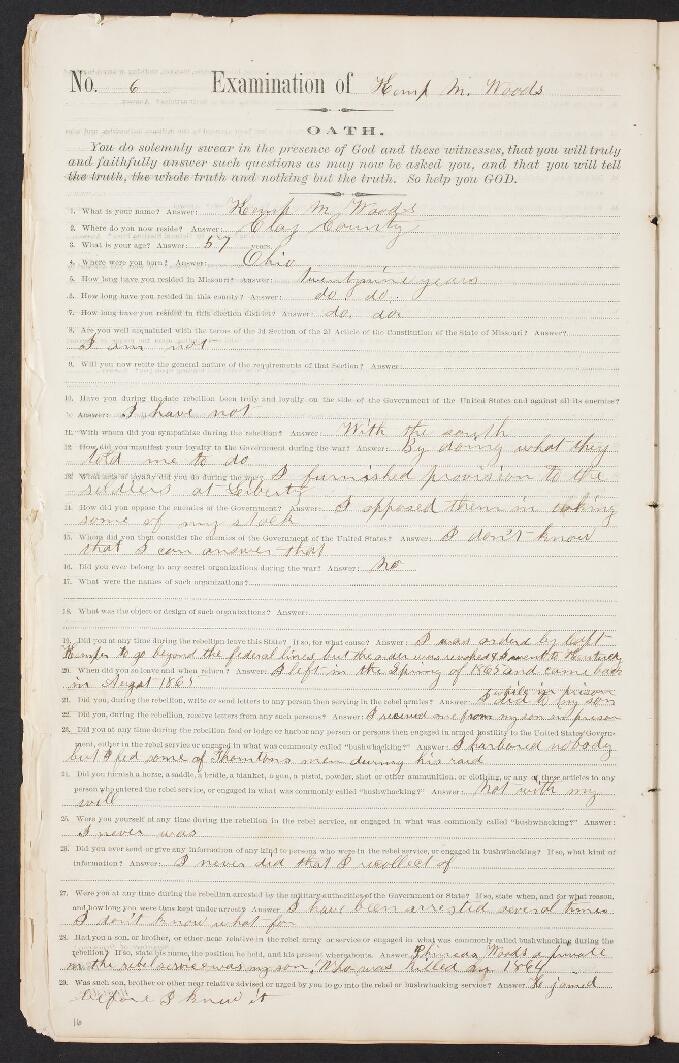 No. 6 Examination of Kemp M. Woods
OATH.
You do solemnly swear in the presence of God and these witnesses, that you will truly
and faithfully answer such questions as may now be asked you, and that you will tell
the truth, the whole truth and nothing but the truth. So help you GOD.
1. What is your name? Answer: Kemp M. Woods
2. Where do you now reside? Answer: Clay County
3. What is your age? Answer: 57 years.
4. Where were you born? Answer: Ohio
5. How long have you resided in Missouri? Answer: twenty nine years
6. How long have you resided in this county? Answer: do do.
7. How long have you resided in this election district? Answer: do. do.
8. Are you well acquainted with the terms of the 3d Section of the 2d Article of the Constitution of the State of Missouri? Answer?
I am not
9. Will you now recite the general nature of the requirements of that Section? Answer:
10. Have you during the late rebellion been truly and loyally on the side of the Government of the United States and against all its enemies?
Answer: I have not
11. With whom did you sympathize during the rebellion? Answer: With the south
12. How did you manifest your loyalty to the Government during the war? Answer: By doing what they
told me to do
13. What acts of loyalty did you do during the war: I furnished provision to the
soldiers at Liberty
14. How did you oppose the enemies of the Government? Answer: I opposed them in taking
some of my stock
15. Whom did you then consider the enemies of the Government of the United States? Answer: I don't know
that I can answer that
16. Did you ever belong to any secret organizations during the war? Answer: No
17. What were the names of such organizations?
18. What was the object or design of such organizations? Answer:
19. Did you at any time during the rebellion leave this State? If so, for what cause? Answer: I was orderd by Capt
Kemper to go beyond the federal lines, but the order was revoked & I went to Kentucky
20. When did you so leave and when return? Answer: I left in the Spring of 1865 and came back
in August 1865
while in prison
21. Did you, during the rebellion, write or send letters to any person then serving in the rebel armies? Answer: I did to my son
22. Did you, during the rebellion, receive letters from any such persons? Answer: I received one from my son in prison
23. Did you at any time during the rebellion feed or lodge or harbor any person or persons then engaged in armed hostility to the United States Govern-
ment, either in the rebel service or engaged in what was commonly called "bushwhacking?" Answer: I harbored nobody
but I fed some of Thorntons men during his raid
24. Did you furnish a horse, a saddle, a bridle, a blanket, a gun, a pistol, powder, shot or other ammunition, or clothing, or any of these articles to any
person who entered the rebel service, or engaged in what was commonly called "bushwhacking?" Answer: Not with my
will
25. Were you yourself at any time during the rebellion in the rebel service, or engaged in what was commonly called "bushwhacking?" Answer:
I never was
26. Did you ever send or give any information of any kind to persons who were in the rebel service, or engaged in bushwhacking? If so, what kind of
information? Answer: I never did that I recollect of
27. Were you at any time during the rebellion arrested by the military authorities of the Government or State? If so, state when, and for what reason,
and how long you were thus kept under arrest? Answer I have been arrested several times
I don't know what for
28. Had you a son, or brother, or other near relative in the rebel army or service or engaged in what was commonly called bushwhacking during the
rebellion? If so, state his name, the position he held, and his present whereabouts. Answer: Woods a private
in the rebel service was my son. was killed in 1864
29. Was such son, brother or other near relative advised or urged by you to go into the rebel or bushwhacking service? Answer: He joined
before I knew it
16